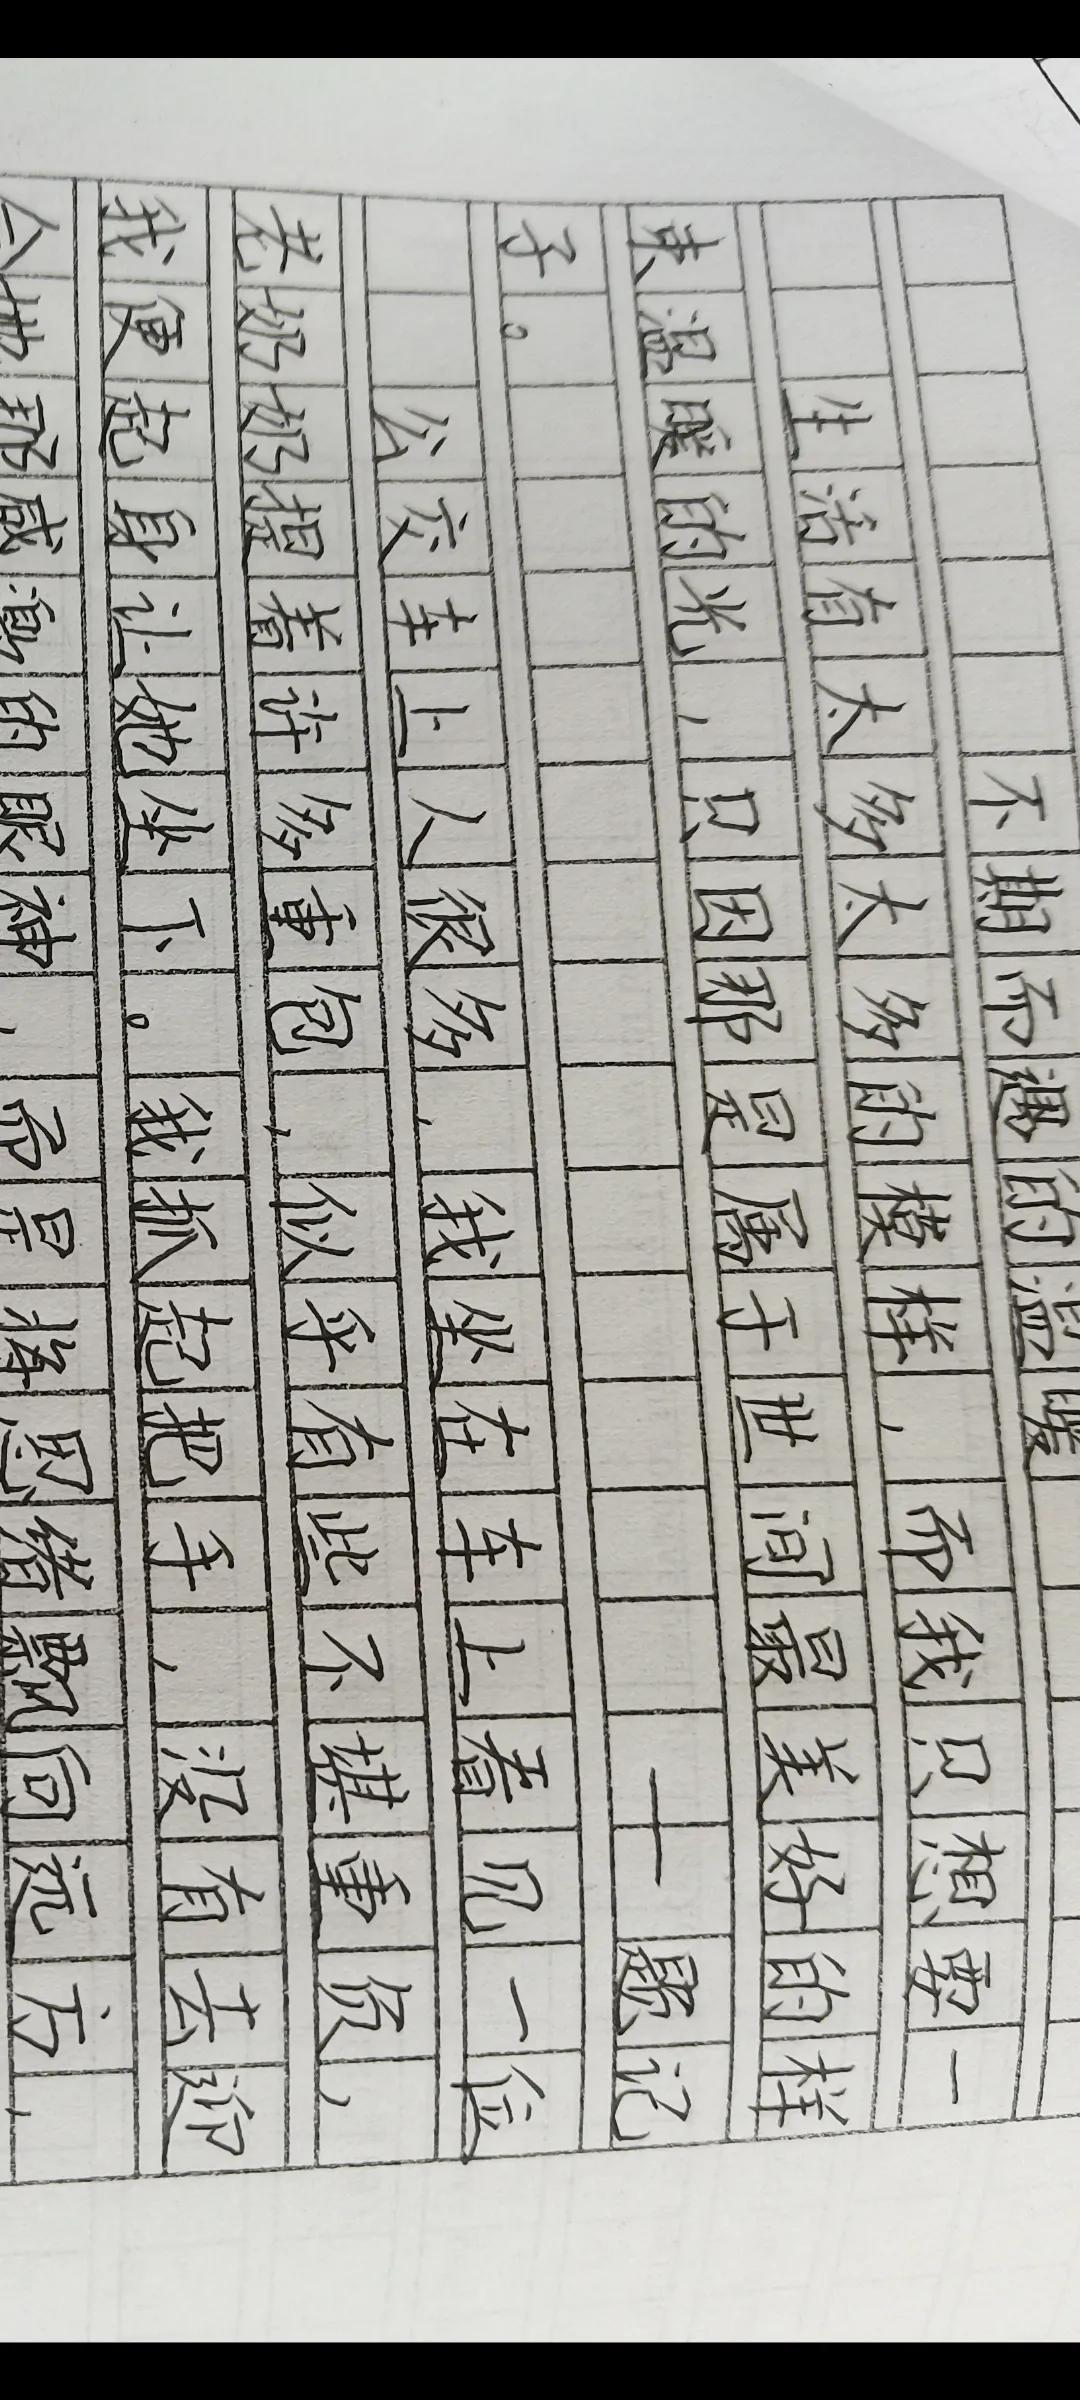 不期而遇的温暖
生活有太多太多的模样，而我只想要一
束温暖的光，只因那是属于世间最美好的样
子。
——题记
公交车上人很多，我坐在车上看见一位
老奶奶提着许多重包，似乎有些不堪重负，
我便起身让她坐下。我抓起把手，没有去迎
合她那感激的眼神，而是将思绪飘向远方，